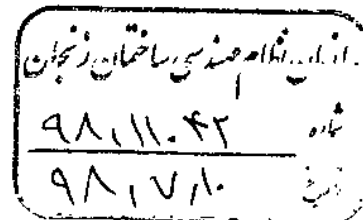 سازمان نظام مهندسی ساختمان زنجان
شماره ۹۸٫۱۱۰۴۲
تاریخ ۹۸٫۷٫۱۰